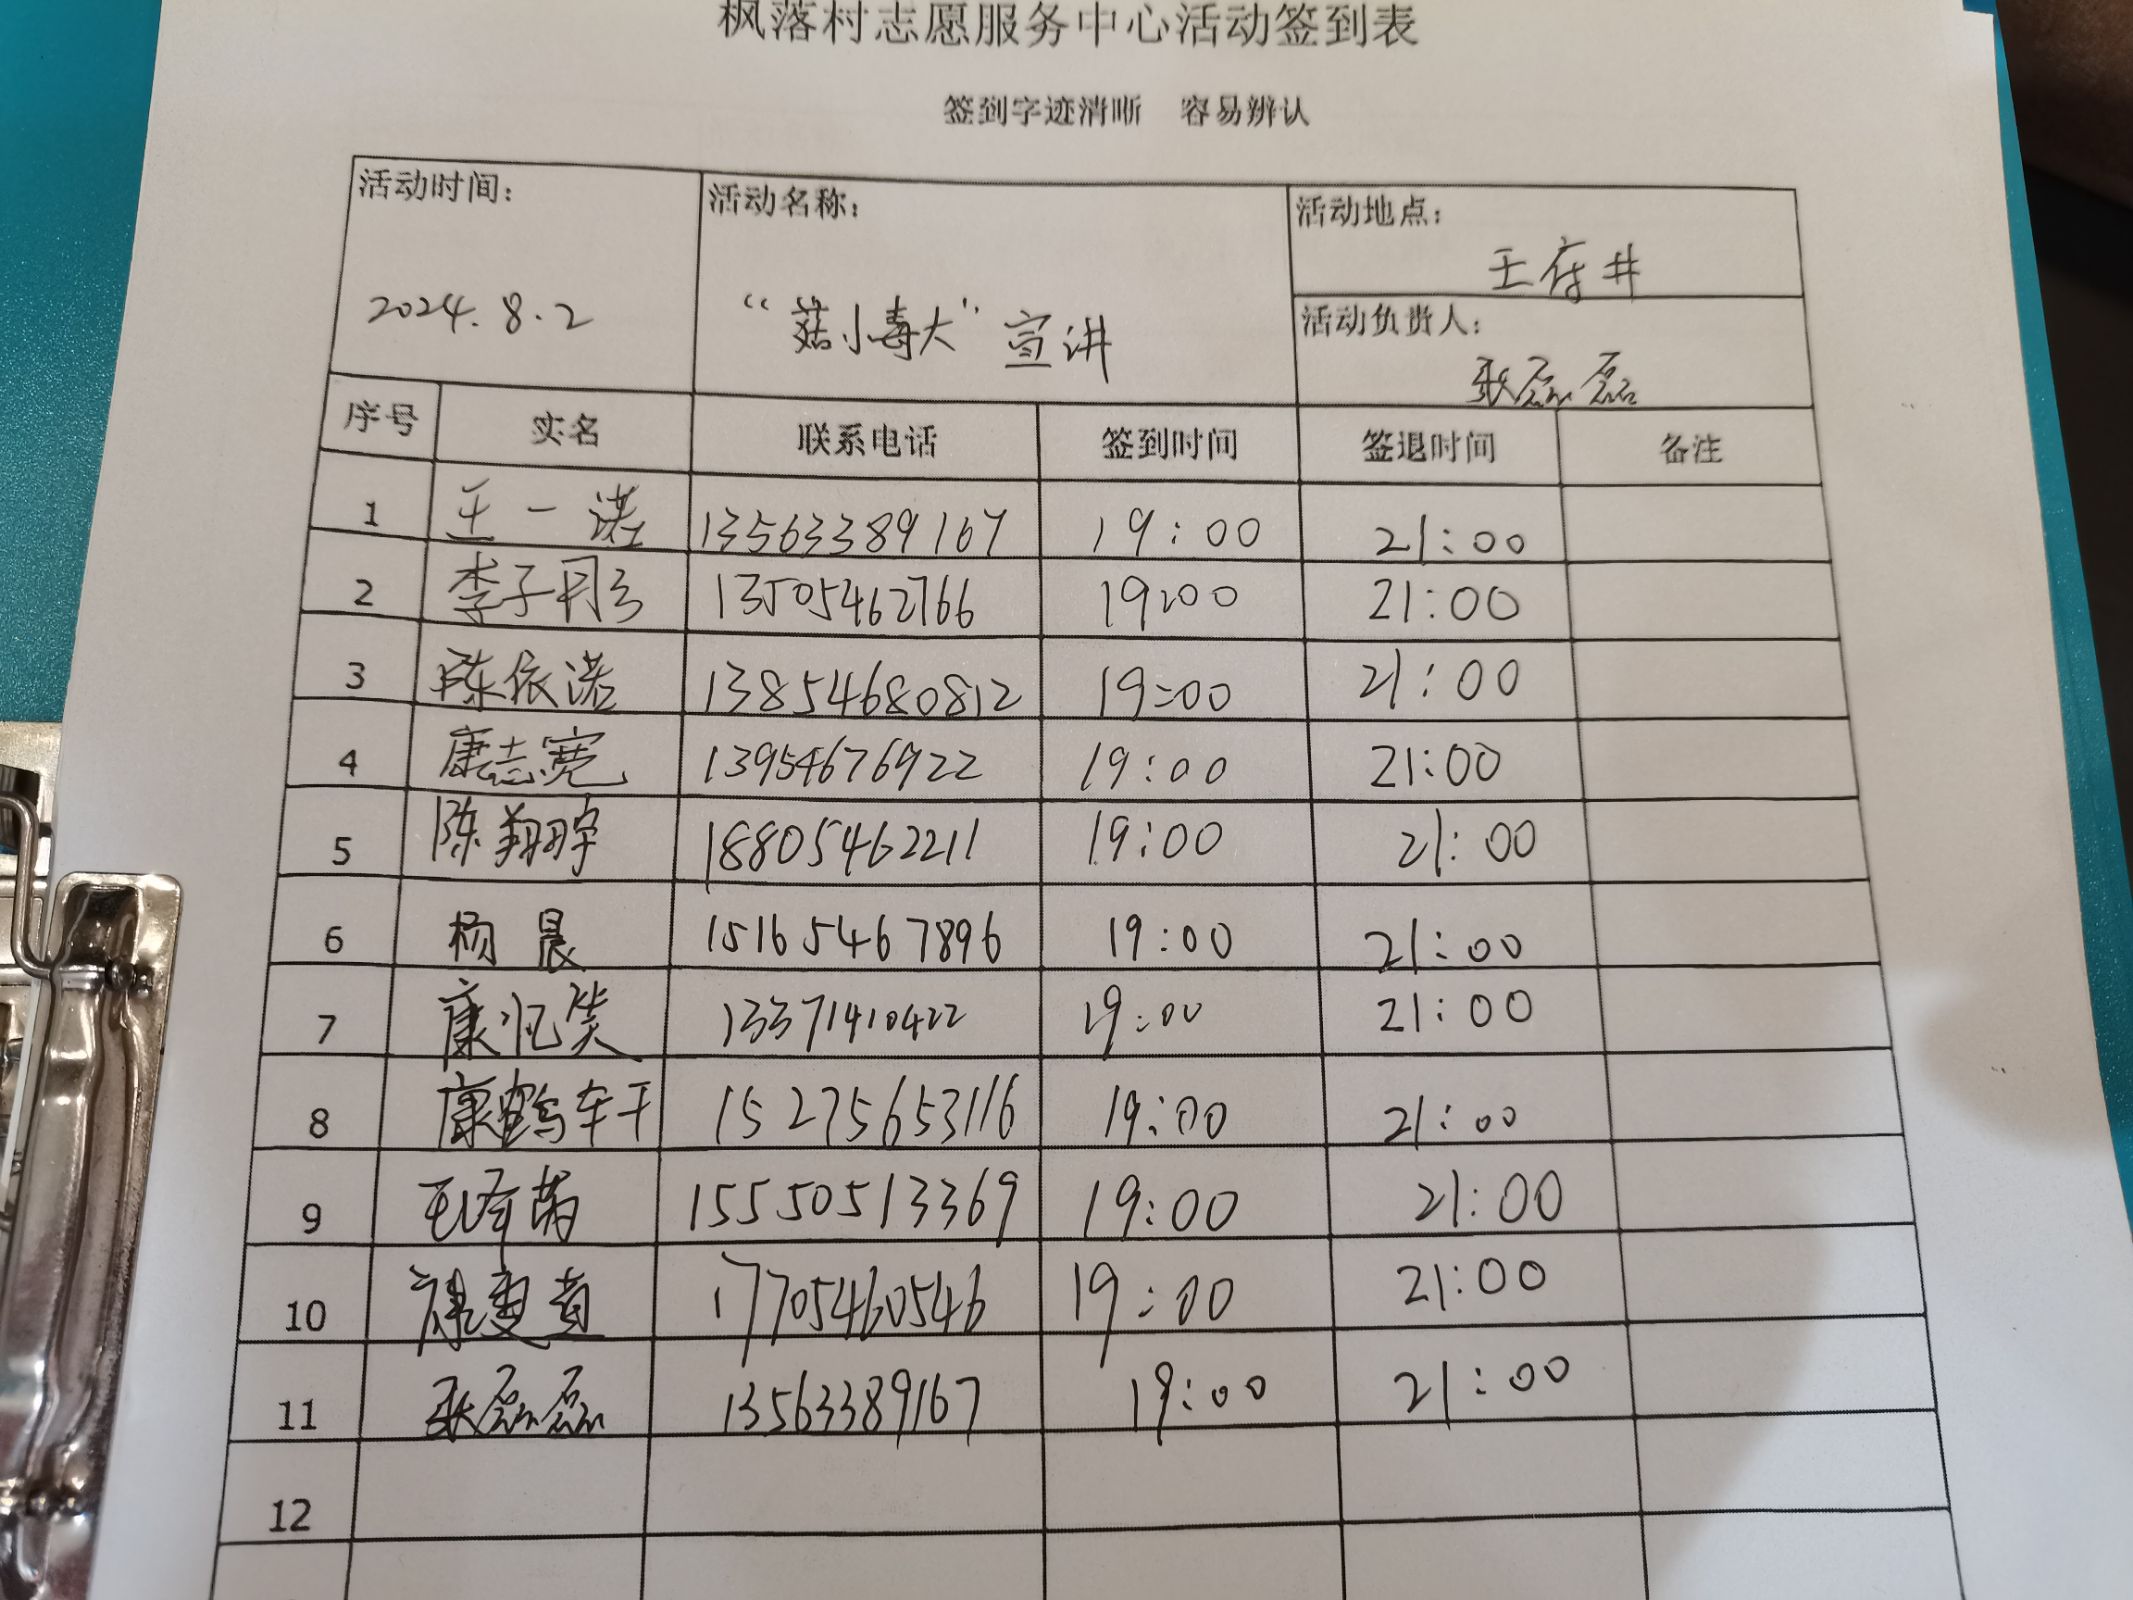 枫落村志愿服务中心活动签到表
签到字迹清晰 容易辨认
活动时间： 活动名称： 活动地点：
王府井
2024.8.2 “菇小毒大”宣讲
活动负责人：
张磊磊
序号 实名 联系电话 签到时间 签退时间 备注
1 王一诺 13563389167 19:00 21:00
2 李子玥 13505462766 19:00 21:00
3 陈依诺 13854680812 19:00 21:00
4 康志宽 13954676922 19:00 21:00
5 陈翔宇 18805462211 19:00 21:00
6 杨晨 15165467896 19:00 21:00
7 康 笑 13371410422 19:00 21:00
8 康鹤轩 15275653116 19:00 21:00
9 毛泽 15550513369 19:00 21:00
10 康 17705460546 19:00 21:00
11 张磊磊 13563389167 19:00 21:00
12